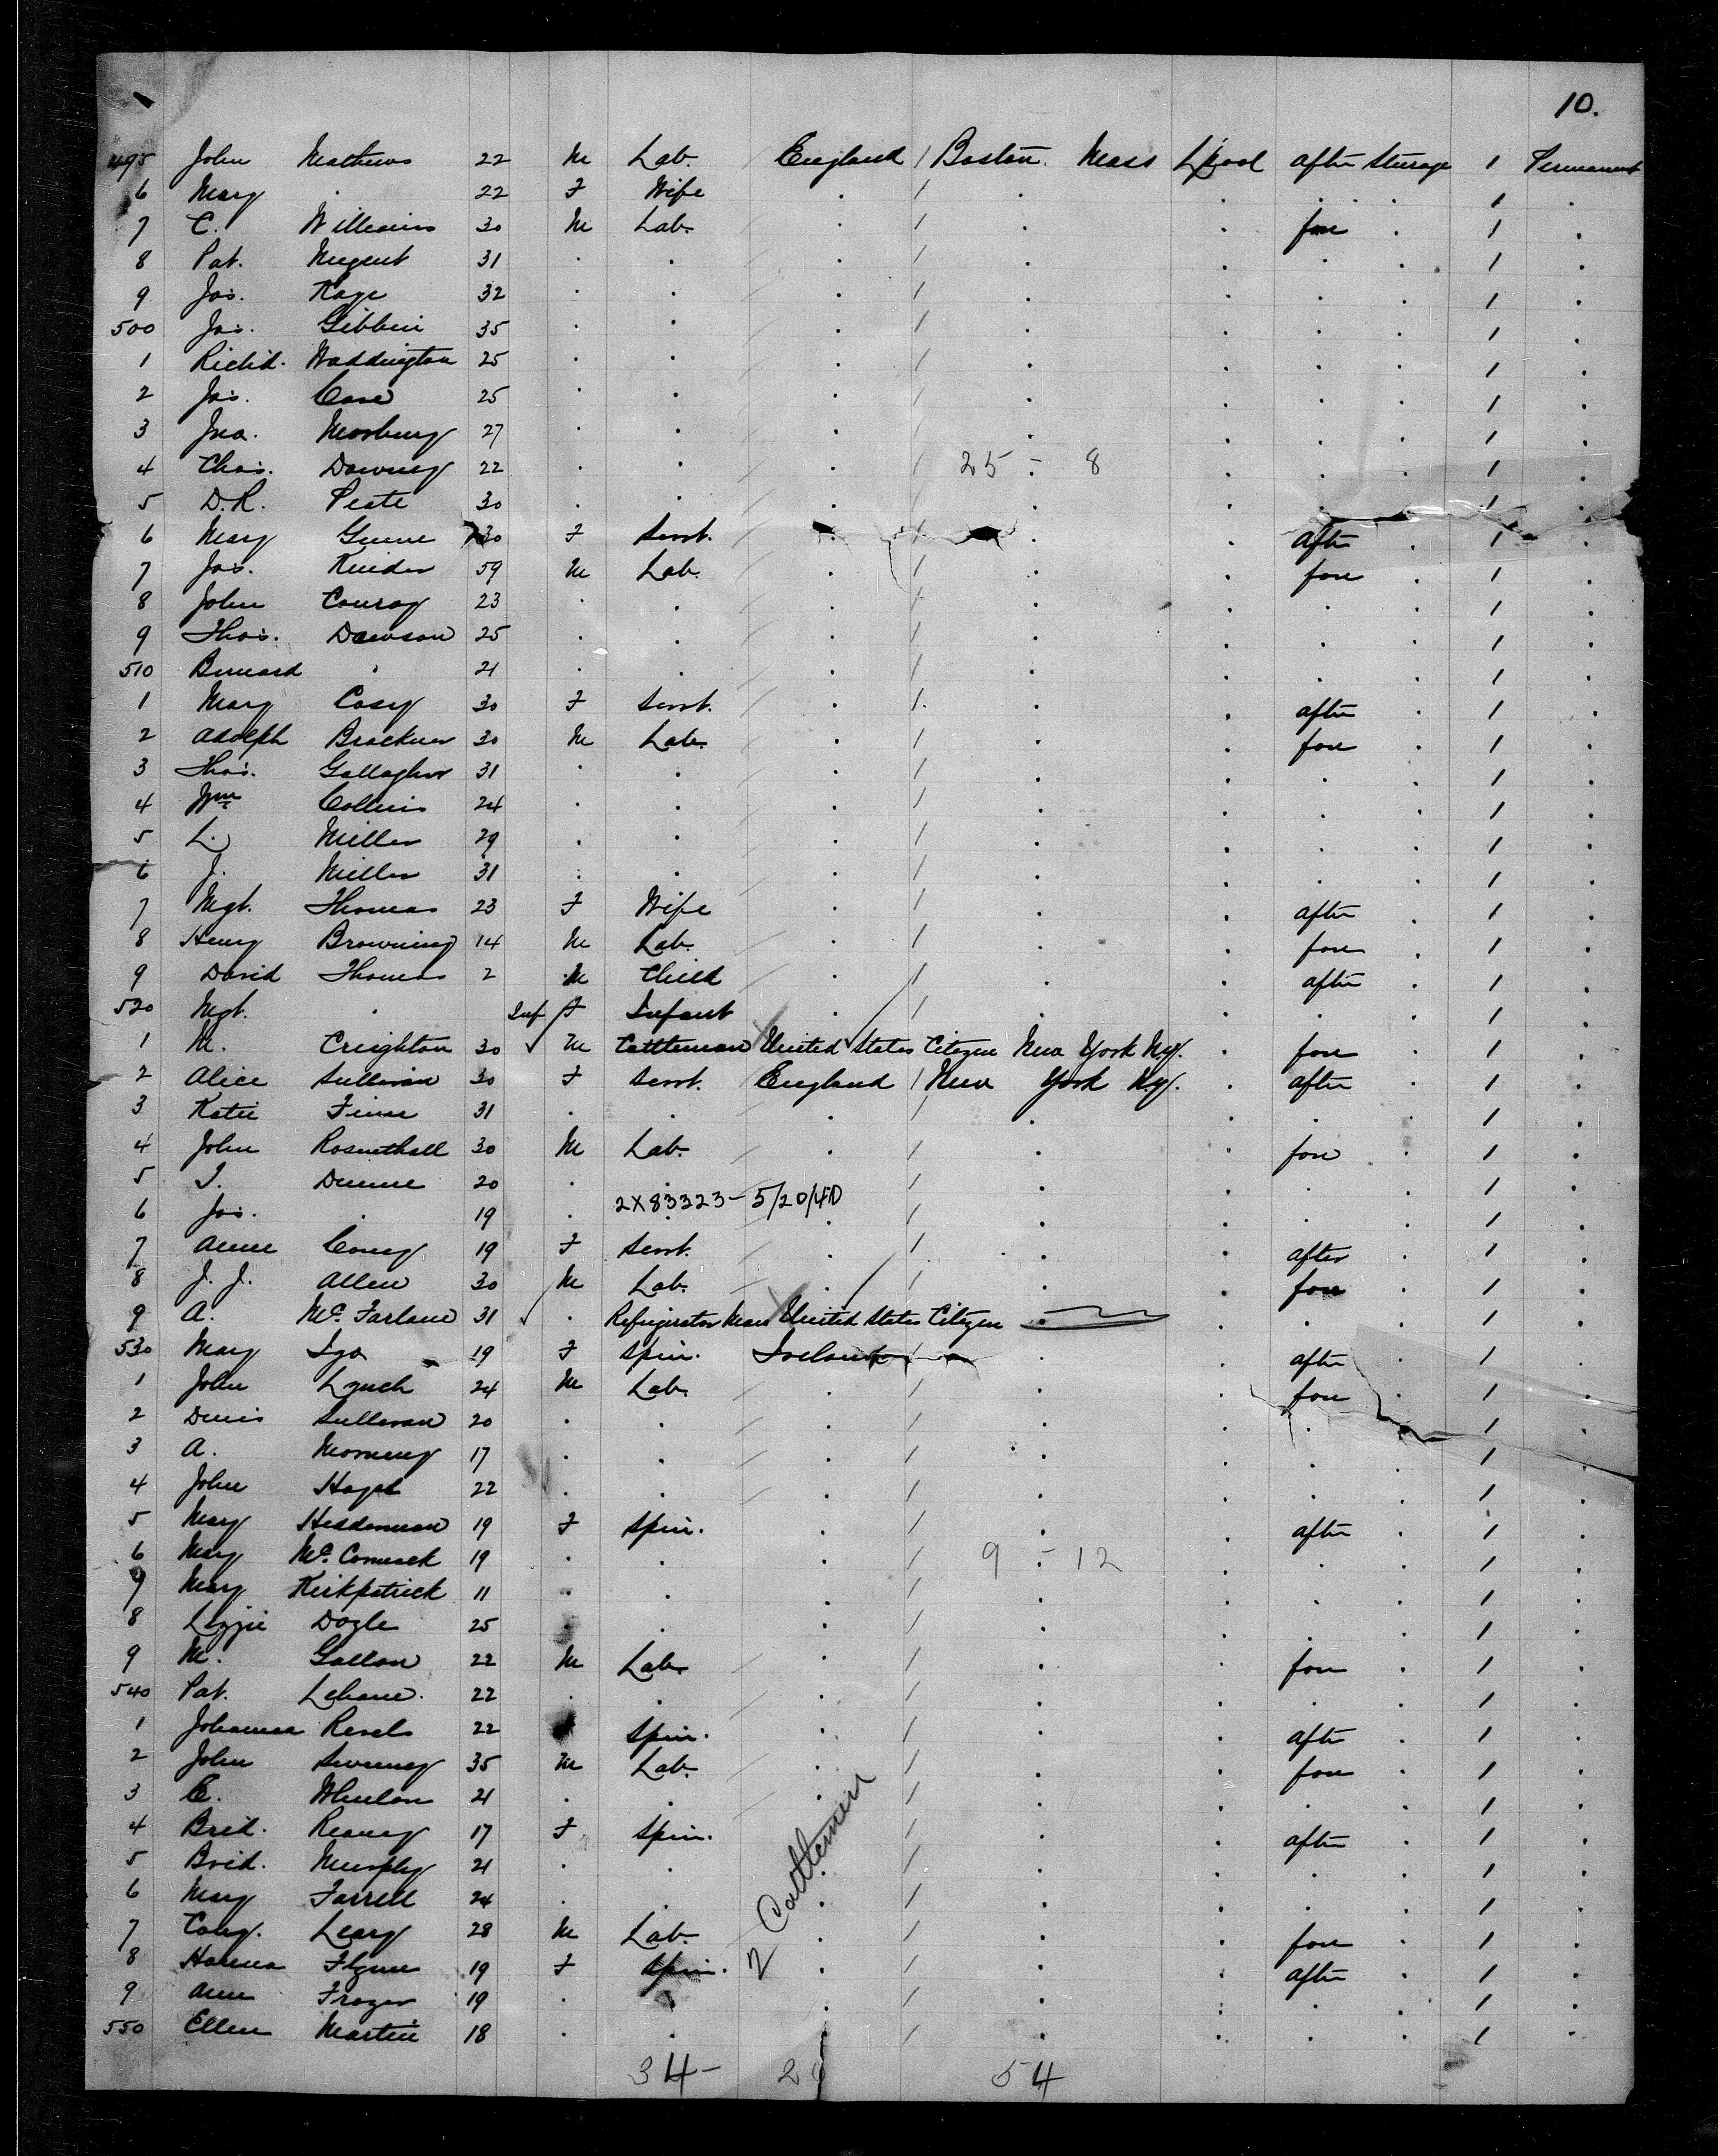 10.
495 John Mathews 22 M Lab. England / Boston. Mass L'pool after Steerage 1 Permanent
6 Mary . 22 F Wife . / . . . . 1 .
7 C. Williams 30 M Lab. . / . . fore . 1 .
8 Pat. Nugent 31 . . . / . . . . 1 .
9 Jas. Kaye 32 . . . / . . . . 1 .
500 Jas. Gibbin 35 . . . / . . . . 1 .
1 Richd. Waddington 25 . . . / . . . . 1 .
2 Jas. Case 25 . . . / . . . . 1 .
3 Jno. 27 . . . / . . . . 1 .
4 Chas. Downey 22 . . . / 25 - 8 . . . 1 .
5 D.R. Peate 30 . . . / . . . . 1 .
6 Mary Gunne 30 F Servt. . / . . after . 1 .
7 Jas. Kinder 59 M Lab. . / . . fore . 1 .
8 John Conroy 23 . . . / . . . . 1 .
9 Thos. Dawson 25 . . . / . . . . 1 .
510 Bernard . 21 . . . / . . . . 1 .
1 Mary Casey 30 F Servt. . / . . after . 1 .
2 Adolph Brackner 30 M Lab. . / . . fore . 1 .
3 Thos. Gallagher 31 . . . / . . . . 1 .
4 Wm Collins 24 . . . / . . . . 1 .
5 L. Miller 29 . . . / . . . . 1 .
6 J. Miller 31 . . . / . . . . 1 .
7 Mgt. Thomas 23 F Wife . / . . after . 1 .
8 Henry Browning 14 M Lab. . / . . fore . 1 .
9 David Thomas 2 M Child . / . . after . 1 .
520 Mgt. . Inf F Infant . / . . . . 1 .
1 M. Creighton 30 M Cattleman United States Citizen New York N.Y. . fore . 1 .
2 Alice Sullivan 30 F Servt. England / New York N.Y. . after . 1 .
3 Katie Finn 31 . . . / . . . . 1 .
4 John Rosenthall 30 M Lab. . / . . fore . 1 .
5 T. Dunne 20 . . . / . . . . 1 .
6 Jas. . 19 . 2X83323 - 5/20/40 . / . . . . 1 .
7 Anne Coney 19 F Servt. . / . . after . 1 .
8 J. J. Allen 30 M Lab. . / . . fore . 1 .
9 A. McFarlane 31 . Refrigerator Man United States Citizen . . . . 1 .
530 Mary Igo 19 F Spin. Ireland / . . after . 1 .
1 John Lynch 24 M Lab. . / . . fore . 1 .
2 Denis Sullivan 20 . . . / . . . . 1 .
3 A. Moroney 17 . . . / . . . . 1 .
4 John 22 . . . / . . . . 1 .
5 Mary Hedderman 19 F Spin. . / . . after . 1 .
6 Mary McCormack 19 . . . / 9 - 12 . . . 1 .
7 Mary Kirkpatrick 11 . . . / . . . . 1 .
8 Lizzie Doyle 25 . . . / . . . . 1 .
9 M. Gallon 22 M Lab. . / . . fore . 1 .
540 Pat. Lehane. 22 . . . / . . . . 1 .
1 Johanna Revels 22 Spin. . / . . after . 1 .
2 John Sweeney 35 M Lab. . / . . fore . 1 .
3 E. Whelan 21 . . . / . . . . 1 .
4 Brid. Reaney 17 F Spin. . / . . after . 1 .
5 Brid. Murphy 21 . . . / . . . . 1 .
6 Mary Farrell 24 . . . / . . . . 1 .
7 Leary 28 M Lab. . / . . fore . 1 .
8 Hanna Flynn 19 F Spin. . / . . after . 1 .
9 Ann Frazer 19 . . . / . . . . 1 .
550 Ellen Martin 18 . . . / . . . . 1 .
2 Cattlemen
34 - 20 54